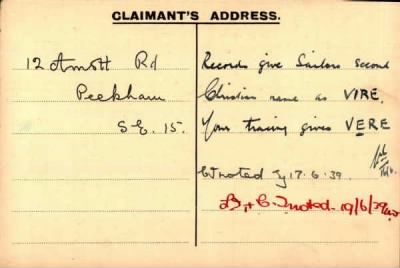 CLAIMANT'S ADDRESS.
12 Amott Rd
Peckham
S.E. 15.
Records give Sailors second
Christian name as VIRE.
Your tracing gives VERE
noted 17.6.39.
B. & C. noted 19/6/39